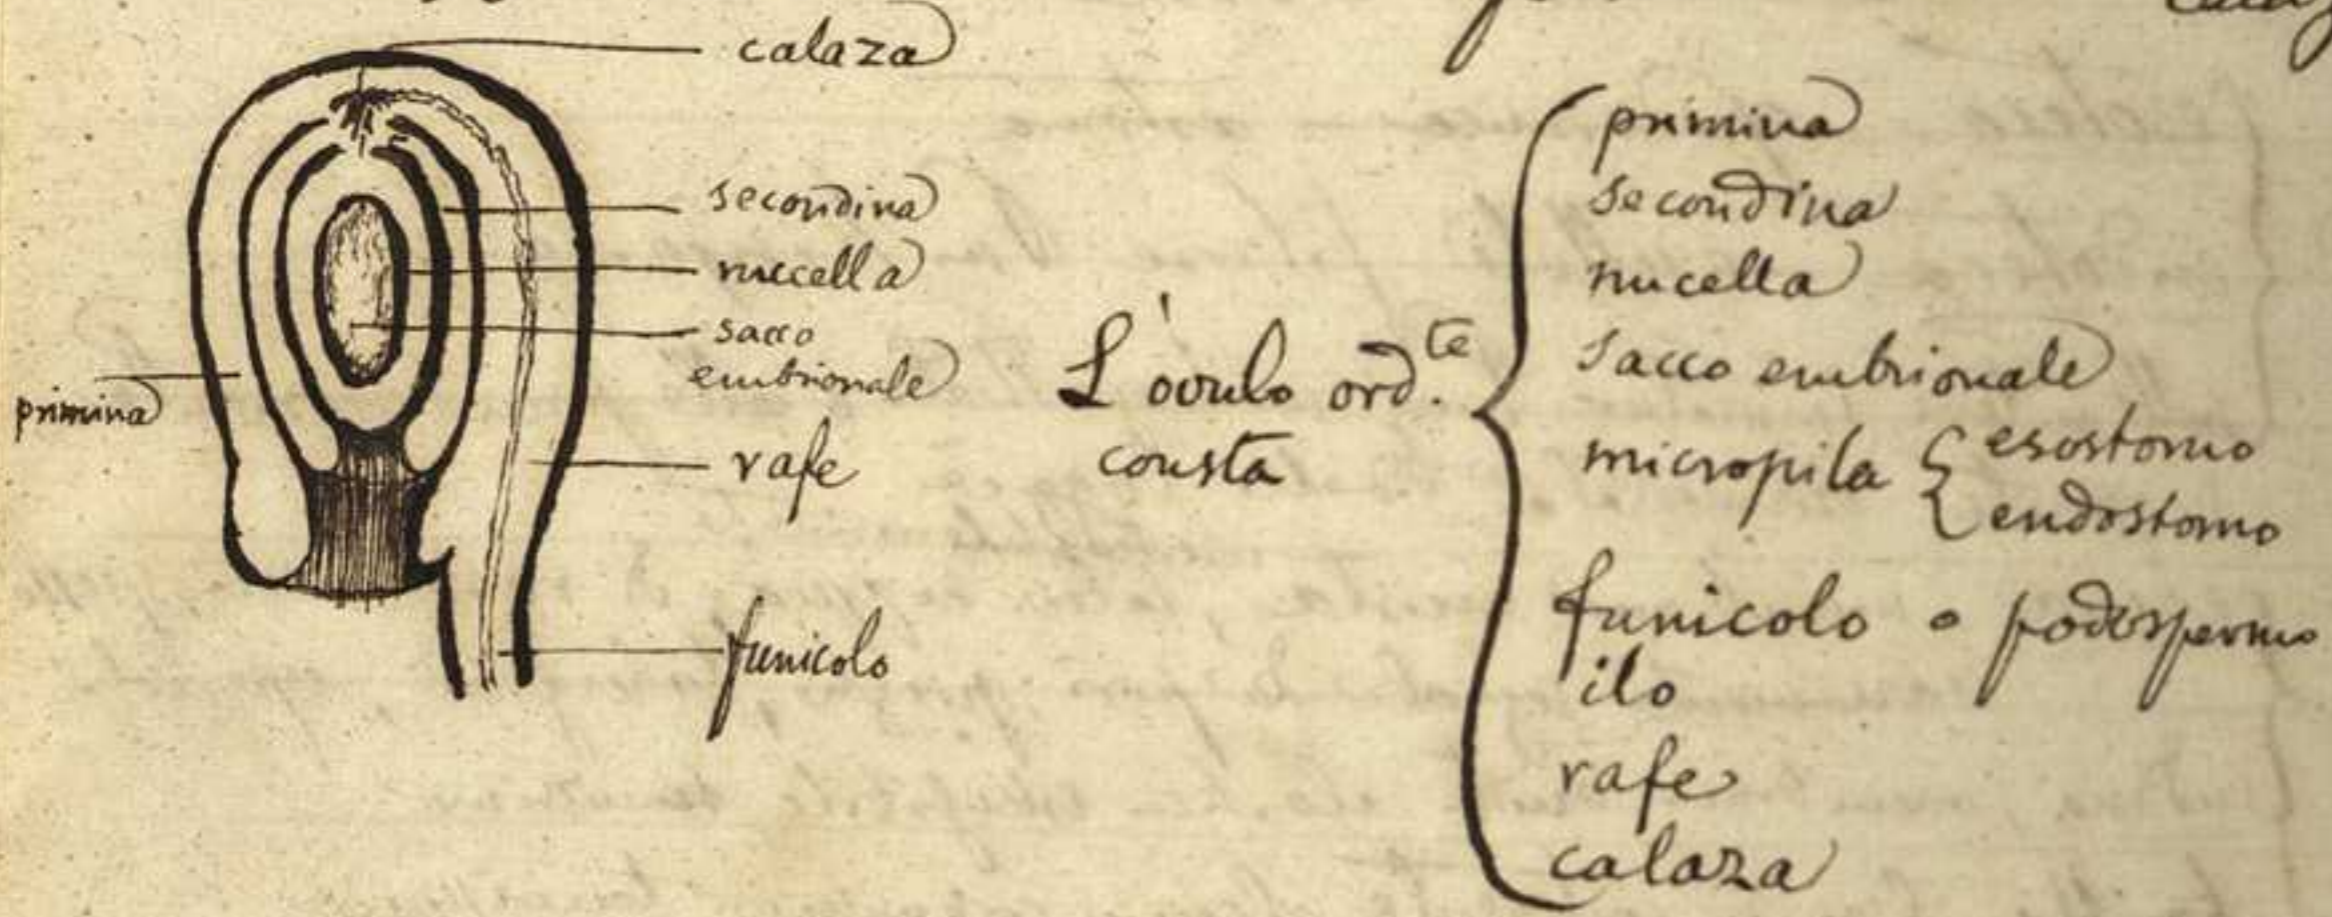 calaza
secondina
nuccella
sacco
embrionale
primina
rafe
funicolo
L'ovulo ord.te
consta
primina
secondina
nucella
sacco embrionale
micropila { esostomo
endostomo
funicolo o podospermo
ilo
rafe
calaza